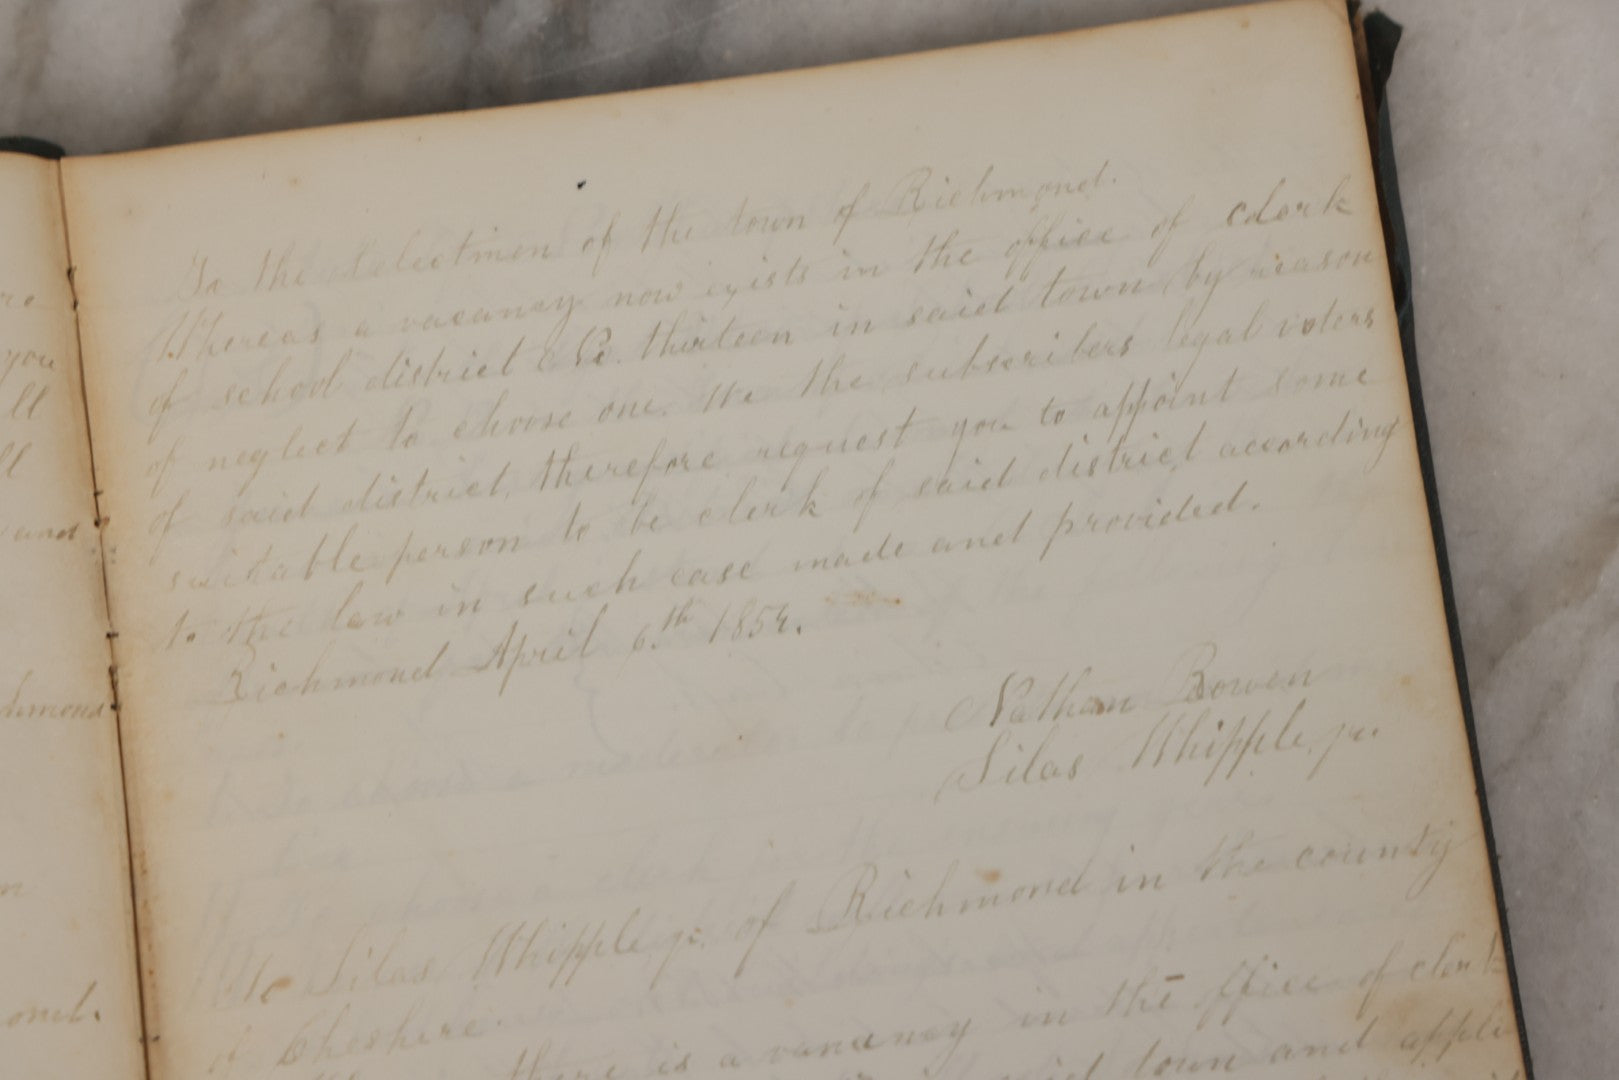 To the Selectmen of the town of Richmond.
Whereas a vacancy now exists in the office of clerk
of school district No. thirteen in said town by reason
of neglect to choose one. We the subscribers legal voters
of said district, therefore request you to appoint some
suitable person to be clerk of said district according
to the law in such case made and provided.
Richmond April 6.th 1854.
Nathan Bowen
Silas Whipple jr.
To Silas Whipple jr. of Richmond in the county
of Cheshire.
there is a vacancy in the office of clerk
said town and appli
you
ll
ll
and
chmond
ond.